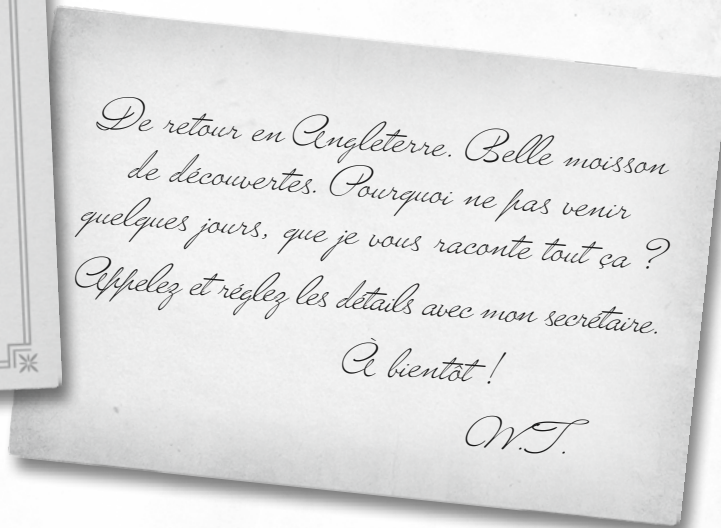 De retour en Angleterre. Belle moisson
de découvertes. Pourquoi ne pas venir
quelques jours, que je vous raconte tout ça ?
Appelez et réglez les détails avec mon secrétaire.
À bientôt !
W.T.